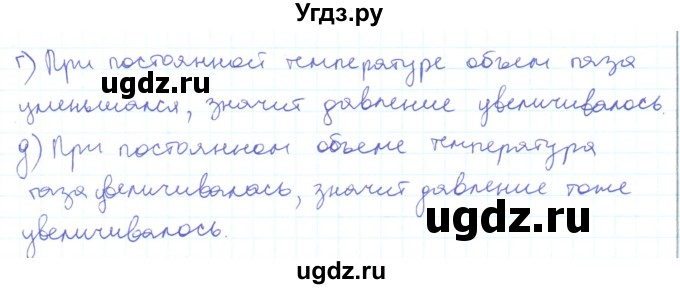 Угдз.ру
г) При постоянной температуре объем газа
уменьшался, значит давление увеличивалось.
д) При постоянном объеме температура
газа увеличивалась, значит давление тоже
увеличивалось.
ugdz.ru
ugdz.ru
ugdz.ru
ugdz.ru
ugdz.ru